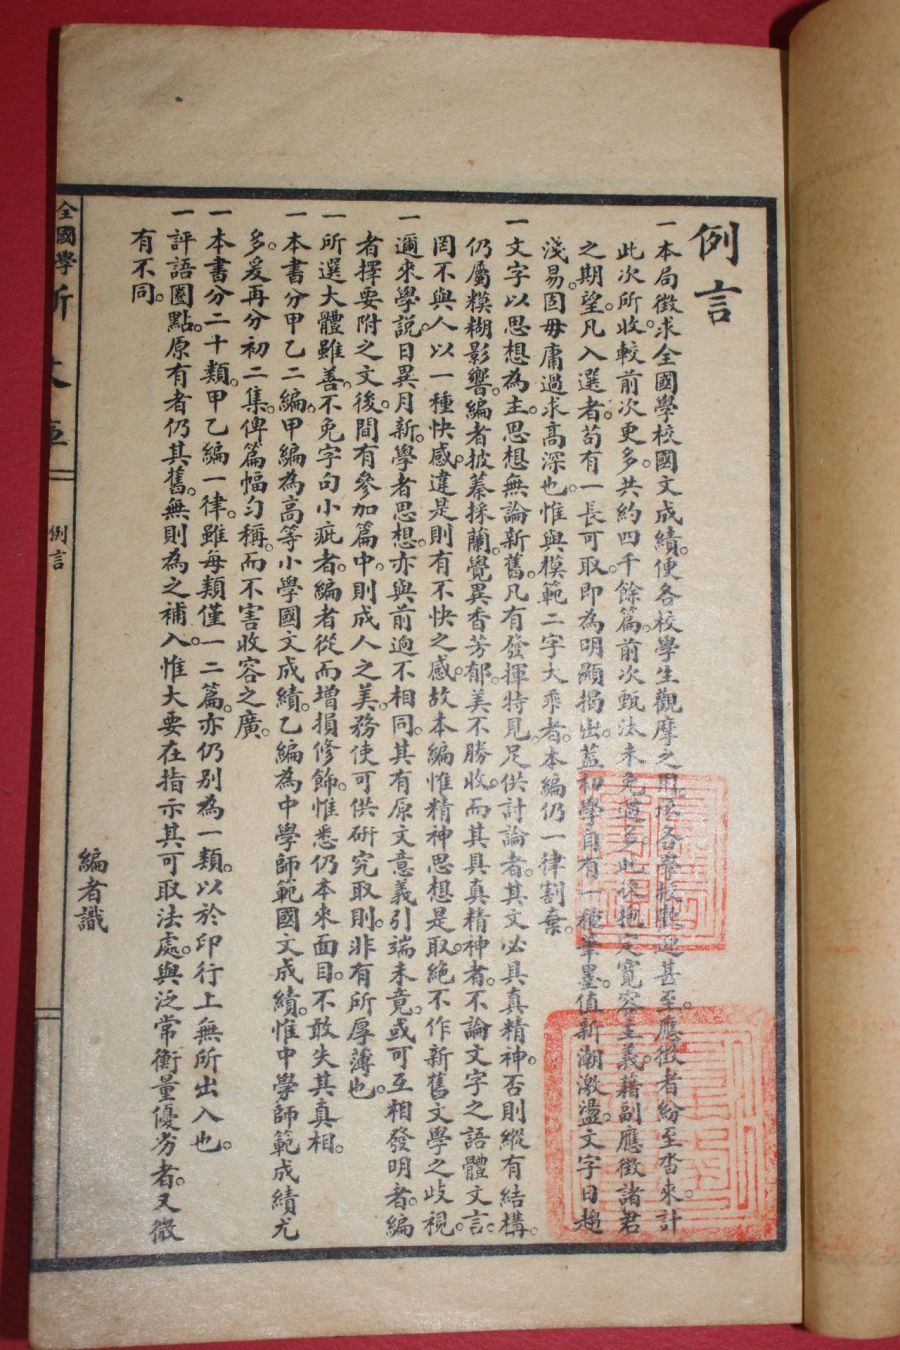 例言
一本局徵求全國學校國文成績。使各校學生觀摩之用。承各學校歡迎甚至。應徵者紛至沓來。計
此次所收。較前次更多。共約四千餘篇。前次甄汰未免過多。此保抱定寬容主義。藉副應徵諸君
之期望。凡入選者。苟有一長可取。即為明顯揭出。蓋初學自有一種筆墨。值新潮激盪。文字日趨
淺易。固毋庸過求高深也。惟與模範二字大乖者。本編仍一律割棄。
一文字以思想為主。思想無論新舊。凡有發揮特見。足供討論者。其文必具真精神。否則縱有結構。
仍屬糢糊影響。編者披蓁採蘭。覺異香芳郁。美不勝收。而其具真精神者。不論文字之語體文言。
罔不與人以一種快感。違是則有不快之感。故本編惟精神思想是取。絕不作新舊文學之歧視。
一邇來學說。日異月新。學者思想。亦與前迥不相同。其有原文意義引端未竟。或可互相發明者。編
者擇要附之文後。間有參加篇中。則成人之美。務使可供研究取則。非有所厚薄也。
一所選大體雖善。不免字句小疵者。編者從而增損修飾。惟悉仍本來面目。不敢失其真相。
一本書分甲乙二編。甲編為高等小學國文成績。乙編為中學師範國文成績。惟中學師範成績尤
多。爰再分初二集。俾篇幅勻稱。而不害收容之廣。
一本書分二十類。甲乙編一律。雖每類僅一二篇。亦仍別為一類。以於印行上無所出入也。
一評語圈點。原有者仍其舊。無則為之補入。惟大要在指示其可取法處。與泛常衡量優劣者。又微
有不同。
編者識
全國學
新文
例言